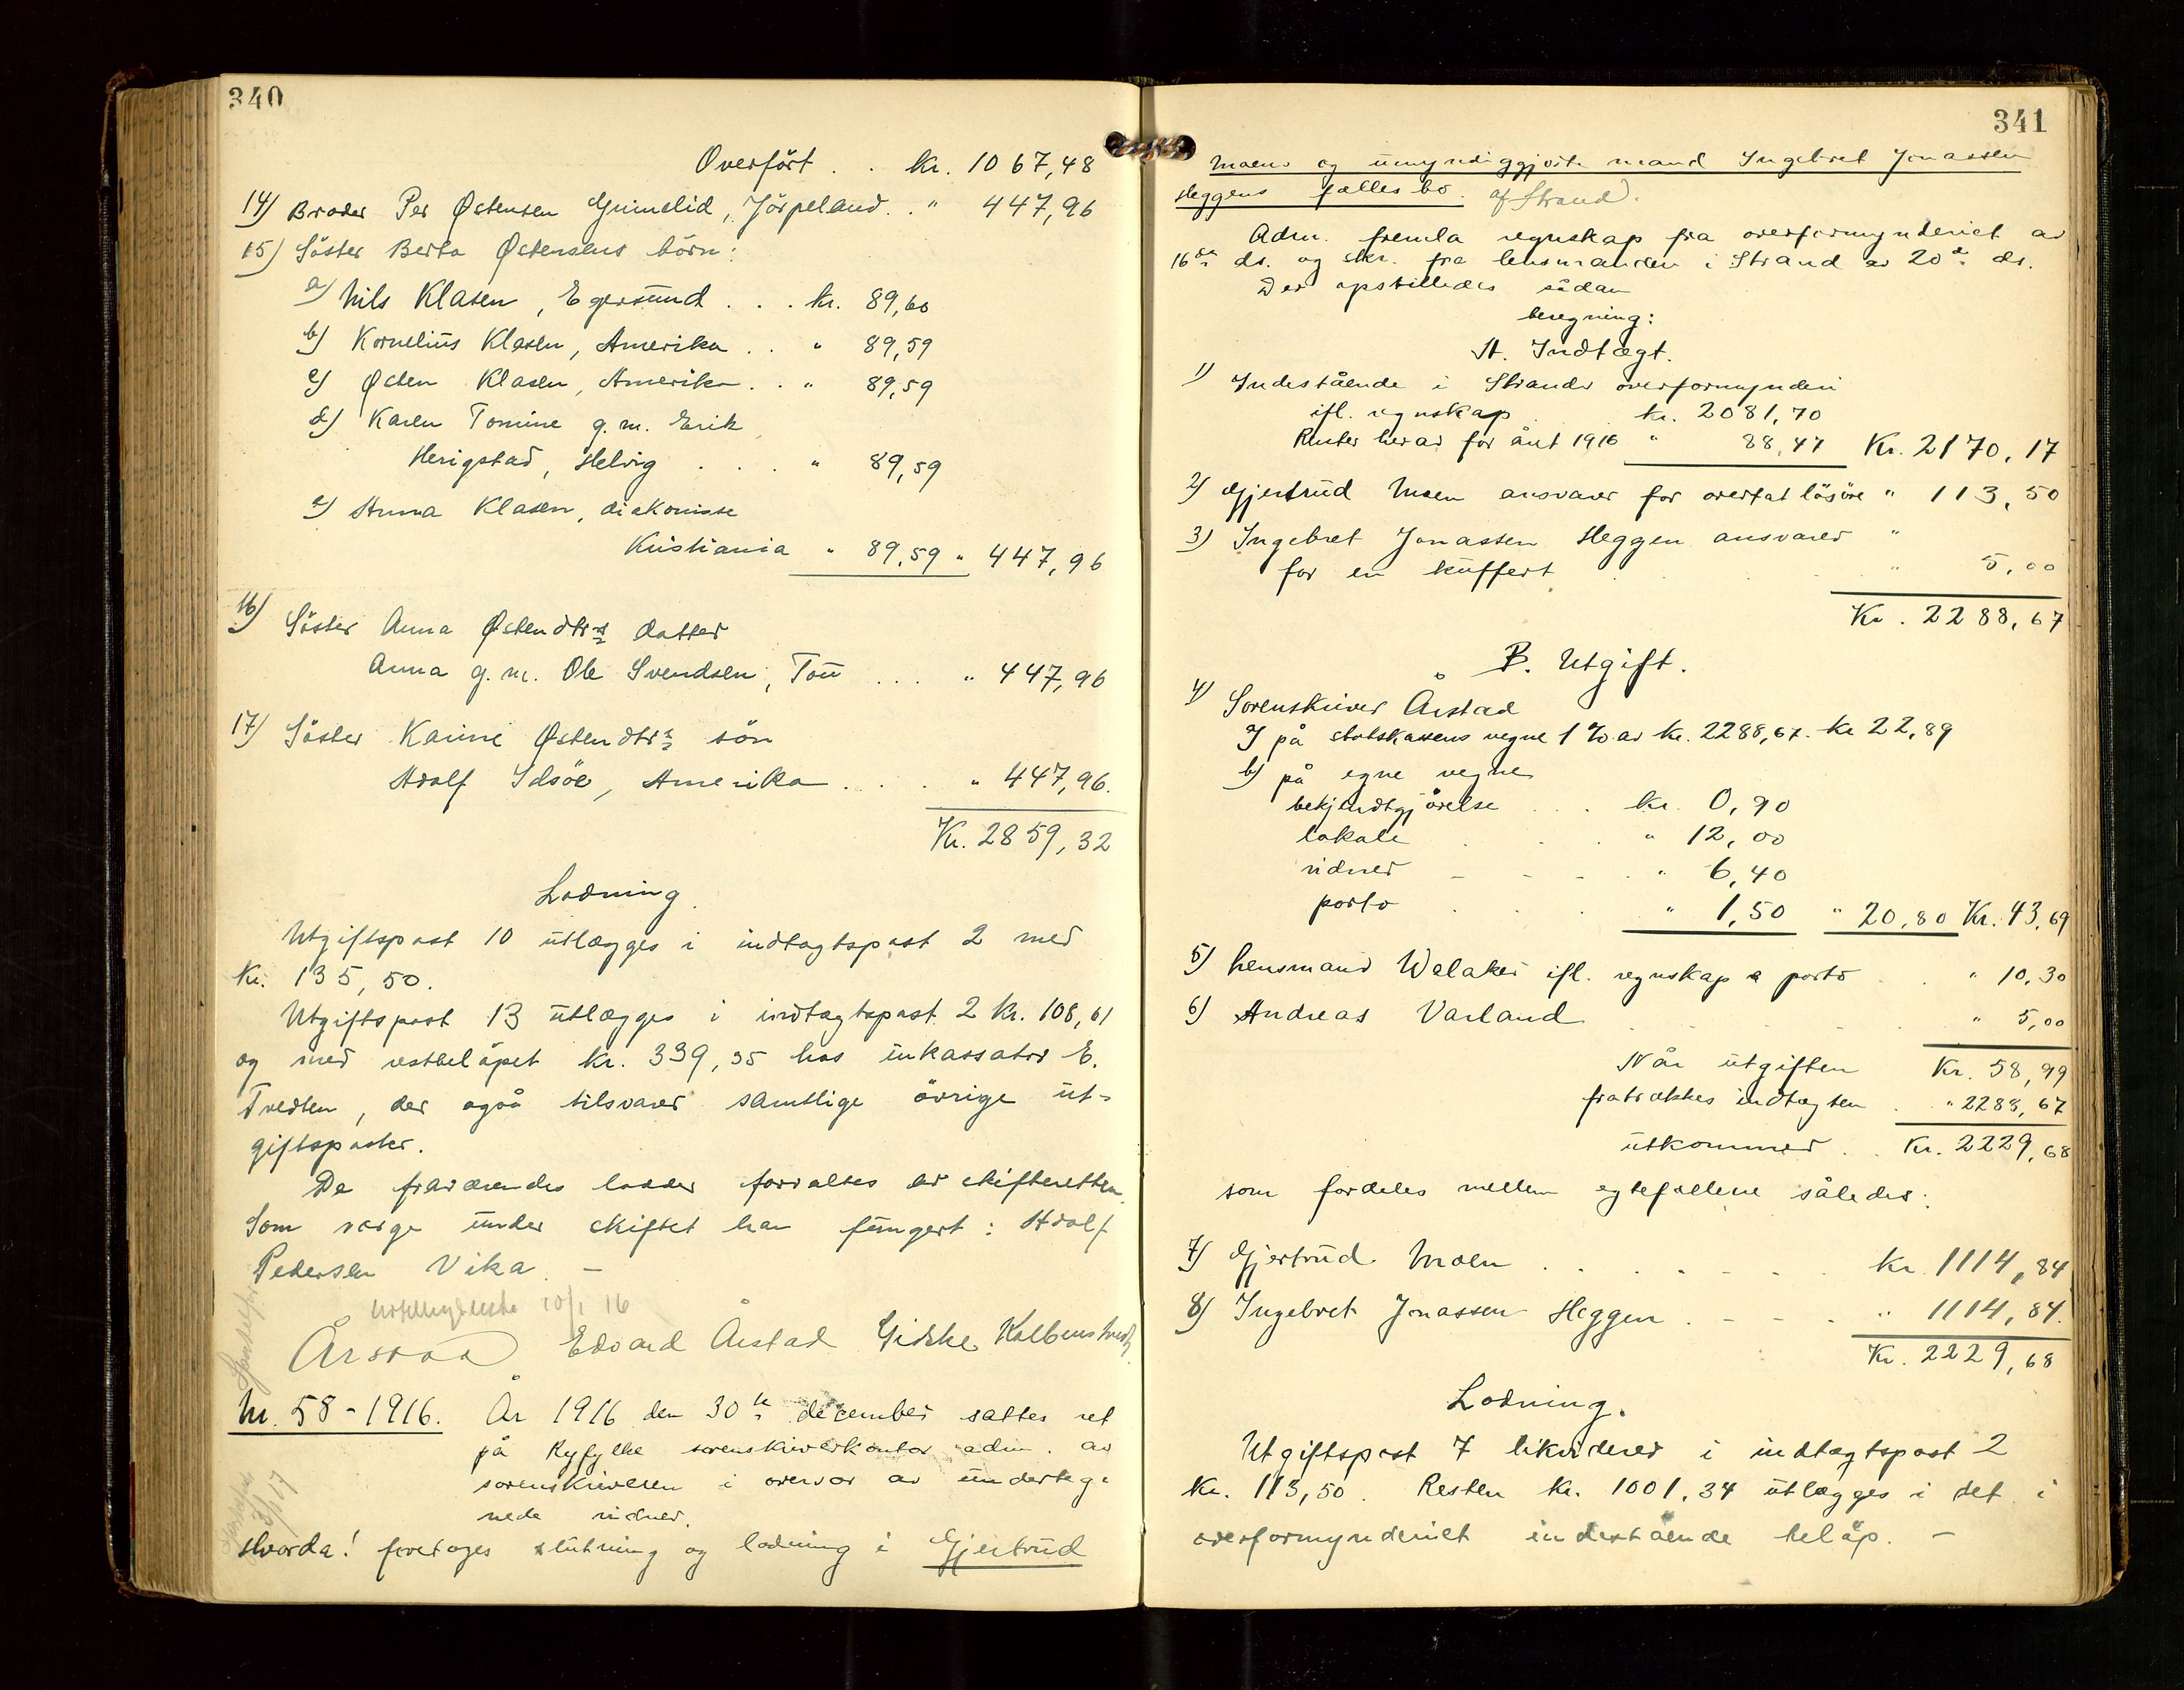 340
Overført . . kr. 1067,48
14) Broder Per Østensen Grimelid, Jörpeland. . " 447,96
15) Söster Berta Østensens börn:
a) Nils Klasen, Egersund . . . kr. 89,60
b) Kornelius Klasen, Amerika . . " 89,59
c) Østen Klasen, Amerika . . " 89,59
d) Karen Tomine g. m. Erik
Herigstad, Helvig . . . " 89,59
e) Anna Klasen, diakonisse
Kristiania " 89,59 " 447,96
16) Söster Anna Østendtrs datter
Anna g. m. Ole Svendsen, Tou . . . " 447,96
17) Söster Karine Østendtrs sön
Adolf Idsöe, Amerika . . . " 447,96.
Kr. 2859,32
Lodning.
Utgiftspost 10 utlægges i indtægtspost 2 med
kr. 135,50.
Utgiftspost 13 utlægges i indtægtspost 2 kr. 108,61
og med restbelöpet kr. 339,35 hos inkassator E.
Tvedten, der også tilsvarer samtlige övrige ut-
giftsposter.
De fraværendes lodder forvaltes av skifteretten.
Som verge under skiftet har fungert: Adolf
Pedersen Vika. –
10/1 16
Årstad Edvard Årstad Gidske
Nr. 58 - 1916. År 1916 den 30te december sattes ret
på Ryfylke sorenskriverkontor adm. av
sorenskriveren i overvær av underteg-
nede vidner.
Hvorda! foretages slutning og lodning i Gjertrud
3/1 17
341
Moens og umyndiggjorte mand Ingebret Jonassen
Heggens fællesbo. af Strand.
Adm. fremla regnskap fra overformynderiet av
16de ds. og skr. fra lensmanden i Strand av 20de ds.
Der opstilledes sådan
beregning:
A. Indtægt.
1) Indestående i Strands overformynderi
ifl. regnskap kr. 2081,70
Renter herav for året 1916 " 88,47 Kr. 2170,17
2) Gjertrud Moen ansvarer for overtat lösöre " 113,50
3) Ingebret Jonassen Heggen ansvarer "
for en kuffert . . . " 5,00
Kr. 2288,67
B. Utgift.
4) Sorenskriver Årstad
på statskassens vegne 1 % av kr. 2288,67. kr 22,89
b) på egne vegne
bekjendtgjörelse . . . kr. 0,90
lokale . . . " 12,00
vidner – – – . " 6,40
porto . . . " 1,50 " 20,80 Kr. 43,69
5) Lensmand Walaker ifl. regnskap a porto . . " 10,30
6) Andreas Varland . . . " 5,00
Når utgiften Kr. 58,99
fratrækkes indtægten . " 2288,67
utkommer . . Kr. 2229,68
som fordeles mellem egtefællene således:
7) Gjertrud Moen . . . . kr. 1114,84
8) Ingebret Jonassen Heggen . – – . " 1114,84.
Kr. 2229,68
Lodning.
Utgiftspost 7 likviderer i indtægtspost 2
kr. 113,50. Resten kr. 1001,34 utlægges i det i
overformynderiet indestående belöp. –